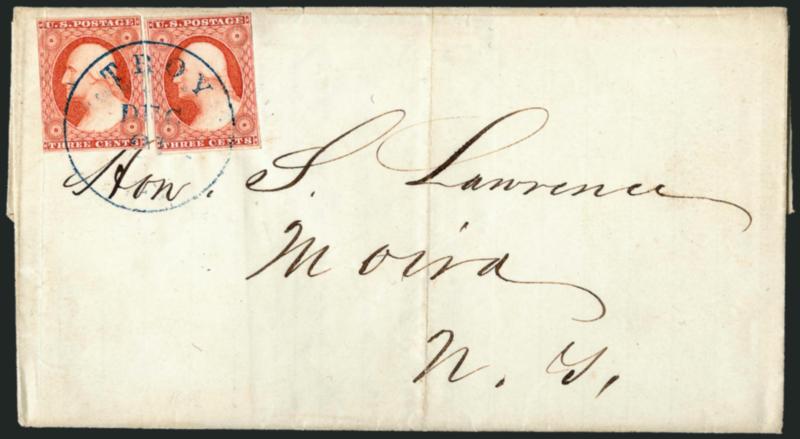 U.S. POSTAGE U.S. POSTAGE
TROY
DEC
THREE CENTS THREE CENTS
Hon. S. Lawrence
Moira
N. Y.